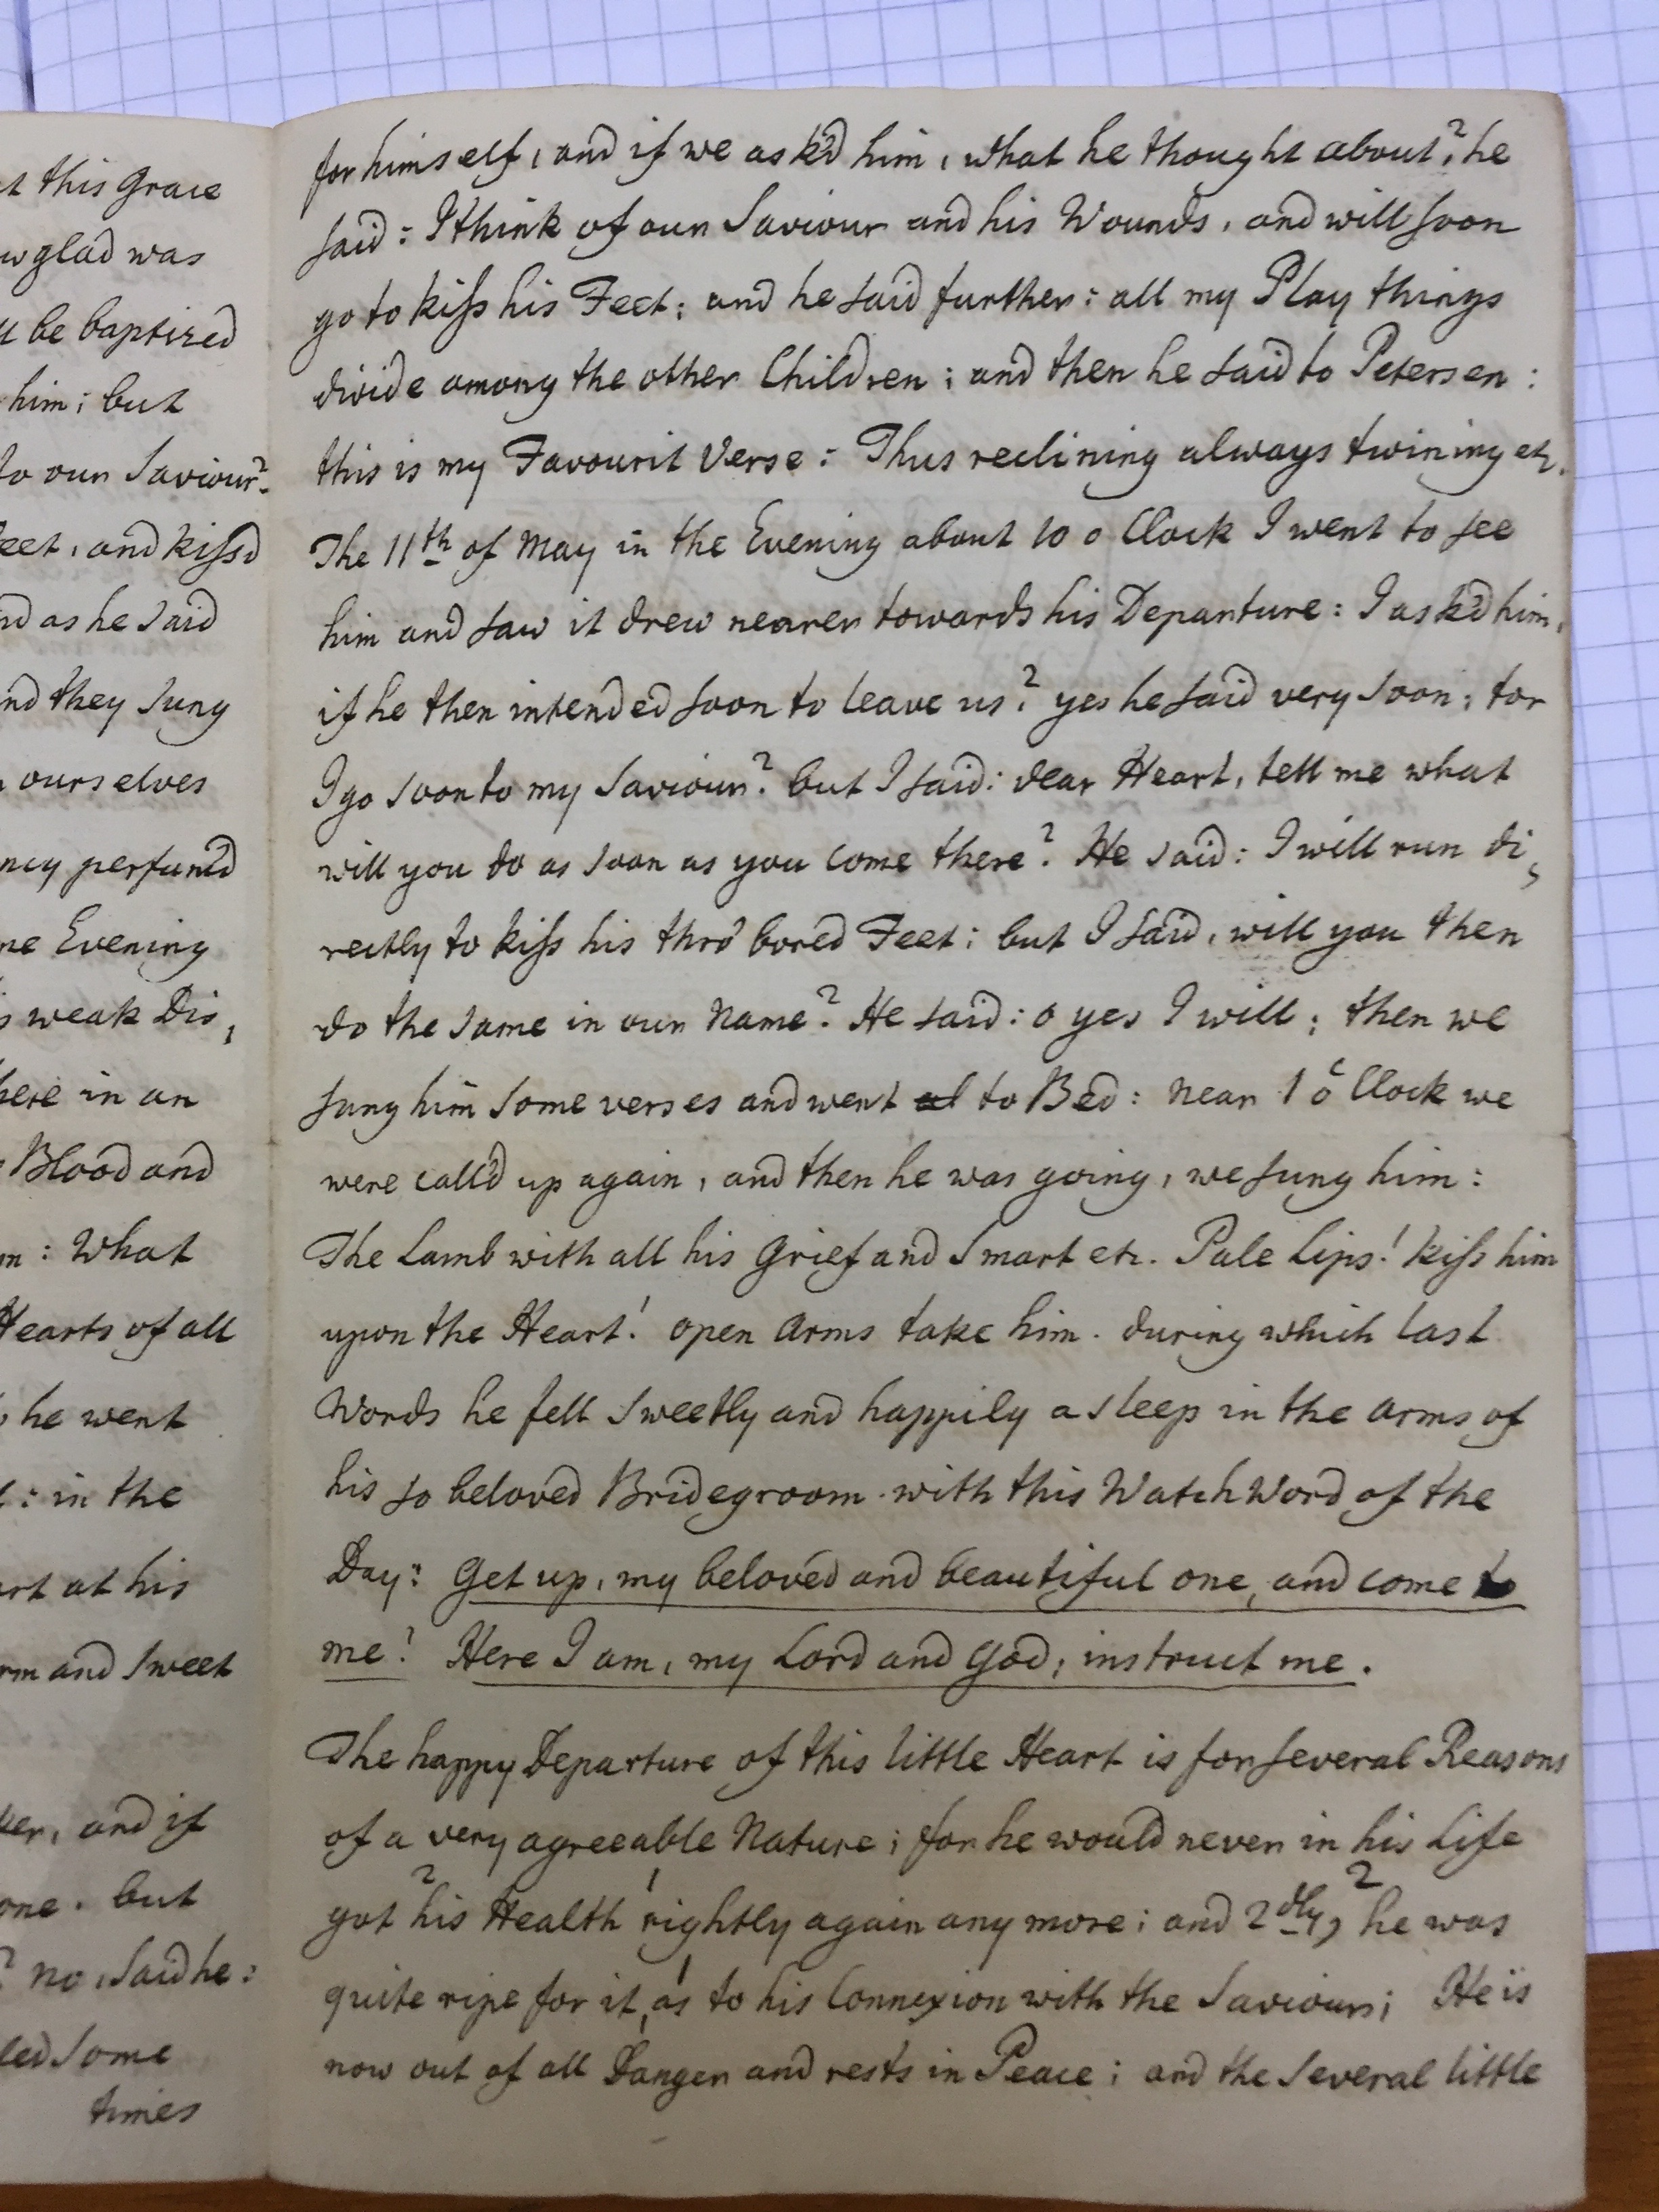 t this Grace
w glad was
be baptized
him; but
to our Saviour?
eet, and kiss'd
nd as he said
nd they sung
ourselves
ncy perfum'd
me Evening
s weak Dis,
here in an
Blood and
m: What
Hearts of all
he went
: in the
art at his
rm and sweet
ter, and if
one. but
? no, said he:
led some
times
for himself, and if we ask'd him, what he thought about? he
said: I think of our Saviour and his Wounds, and will soon
go to kiss his Feet; and he said further: all my Play things
divide among the other Children; and then he said to Petersen:
this is my Favourit Verse: Thus reclining always twining etc.
The 11th of May in the Evening about 10 o Clock I went to see
him and saw it drew nearer towards his Departure: I ask'd him,
if he then intended soon to leave us? yes he said very soon; for
I go soon to my Saviour? but I said: dear Heart, tell me what
will you do as soon as you come there? He said: I will run di,
rectly to kiss his thro' bored Feet; but I said, will you then
do the same in our Name? He said: o yes I will; then we
sung him some verses and went al to Bed: near 1 o Clock we
were call'd up again, and then he was going, we sung him:
The Lamb with all his Grief and Smart etc. Pale Lips! kiss him
upon the Heart! open Arms take him. during which last
Words he fell sweetly and happily asleep in the Arms of
his so beloved Bridegroom. with this Watch Word of the
Day: Get up, my beloved and beautiful one, and come to
me! Here I am, my Lord and God, instruct me.
The happy Departure of this little Heart is for several Reasons
of a very agreeable Nature; for he would never in his Life
got 2 his Health 1 rightly again any more; and 2dly, 2 he was
quite ripe for it, 1 as to his Connexion with the Saviour; He is
now out of all Danger and rests in Peace; and the several little